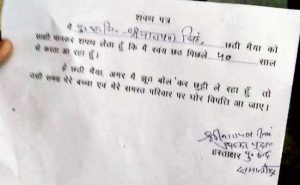 शपथ पत्र
मै श्रीनारायण सिंह, छठी मैया को
साक्षी मानकर शपथ लेता हूँ कि मैं स्वयं छठ पिछले साल
से करता आ रहा हूँ।
हे छठी मैया, अगर मैं झूठ बोल कर छुट्टी ले रहा हूँ तो
उसी समय मेरे बच्चा एवं मेरे समस्त परिवार पर घोर विपत्ति आ जाए।
हस्ताक्षर